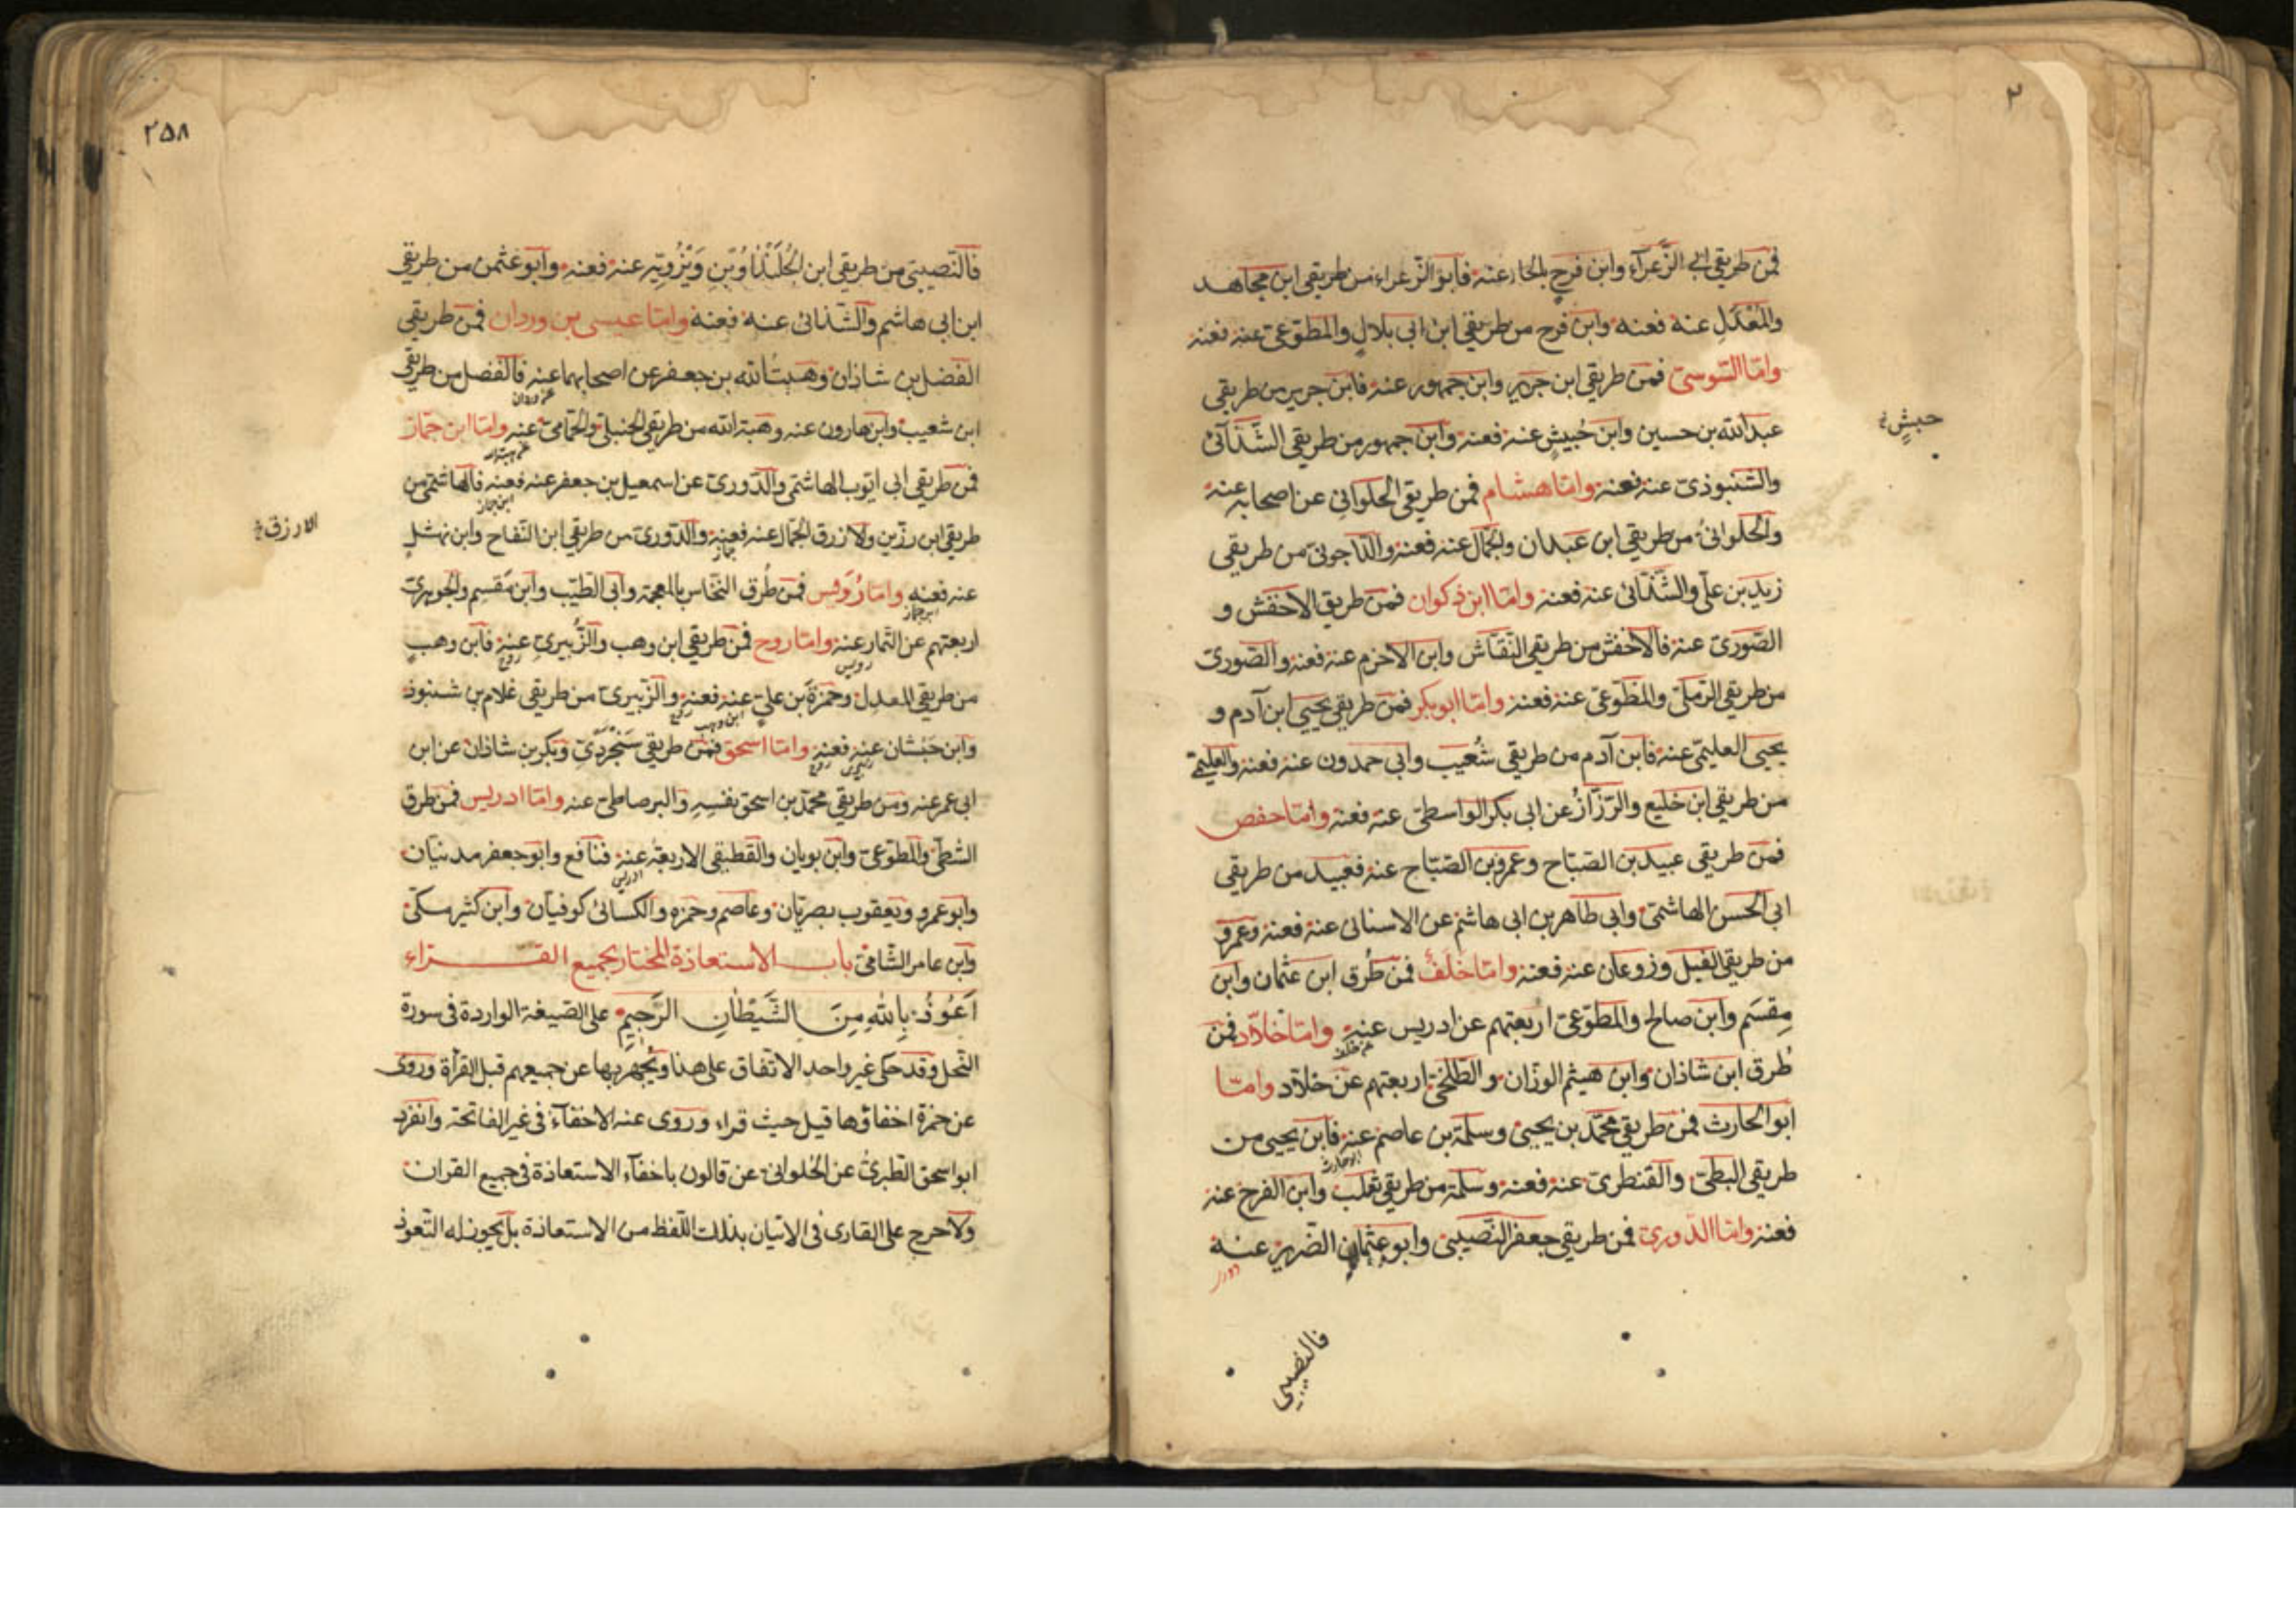 ٢
فمن طريقي ابي الزَّعراء وابن فرحٍ بالحاء عنه فابو الزعراء من طريقي ابن مجاهد
والمُعدَّلِ عنه فعنه وابن فرح من طريقي ابن ابي بلالٍ والمطوّعي عنه فعنه
وامّا السّوسي فمن طريقي ابن جرير وابن جمهور عنه فابن جرير من طريقي
عبد الله بن حسين وابن حُبيشٍ عنه فعنه وابن جمهور من طريقي الشَّذَآئي
حبشٍ
والشنبوذي عنه فعنه وامّا هشام فمن طريقي الحلواني عن اصحابه عنه
والحلواني من طريقي ابن عبدان والجمّال عنه فعنه والدّاجوني من طريقي
زيد بن علي والشَّذَائي عنه فعنه وامّا ابن ذكوان فمن طريق الاخفش و
الصّوري عنه فالاخفش من طريقي النقّاش وابن الاخرم عنه فعنه والصّوري
من طريقي الرّملي والمطّوّعي عنه فعنه وامّا ابوبكر فمن طريقي يحيي ابن آدم و
يحيي العليمي عنه فابن آدم من طريقي شُعَيب وابي حمدون عنه فعنه والعليمي
من طريقي ابن خليع والرّزّاز عن ابي بكر الواسطي عنه فعنه وامّا حفص
فمن طريقي عبيد بن الصبّاح وعمرو بن الصّبّاح عنه فعبيد من طريقي
ابي الحسن الهاشمي وابي طاهر بن ابي هاشم عن الاسناني عنه فعنه وعمرو
من طريقي الفيل وزوعان عنه فعنه وامّا خلَفٌ فمن طُرق ابن عثمان وابن
مِقسَم وابن صالح والمطوّعي اربعتهم عن ادريس عنه وامّا خلاّد فمن
عن خلف
طُرق ابن شاذان وابن هيثم الوزّان والطّلحي اربعتهم عن خلاّد وامّا
ابو الحارث فمن طريقي محمّد بن يحيى وسلمة بن عاصم عنه فابن يحيي من
ابو حارث
طريقي البطي والقنطري عنه فعنه وسلمة من طريقي ثعلب وابن الفرج عنه
فعنه وامّا الدّوري فمن طريقي جعفر النّصيبي وابو عثمان الضّرير عنه
فالنصيبي
٢٥٨
فالنّصيبي من طريقي ابن الجُلَنْدَا وابن دِيزُويَه عنه فعنه وابو عثمن من طريقي
ابن ابي هاشم والشّذائي عنه فعنه وامّا عيسى بن وردان فمن طريقي
الفضل بن شاذان وهبة الله بن جعفر عن اصحابهما عنه فالفضل من طريقي
ابن شعيب وابن هارون عنه وهبة الله من طريقي الحنبلي والحمّامي عنه وامّا ابن جمّاز
فمن طريقي ابي ايّوب الهاشمي والدّوري عن اسمعيل بن جعفر عنه فعنه فالهاشمي من
ابن جماز
طريقي ابن رزّين والازرق الجمّال عنه فعنه والدّوري من طريقي ابن النّفاح وابن نهشلٍ
الازرق
جماز
عنه فعنه وامّا رُوَيس فمن طُرق النخّاس بالمعجمة وابي الطّيّب وابن مَقسِم والجوهري
اربعتهم عن التّمار عنه وامّا روح فمن طريقي ابن وهب والزُّبيري عنه فابن وهبٍ
رويس
روح
من طريقي المعدل وحمزة بن علي عنه فعنه والزّبيري من طريقي غلام بن شنبوذ
ابن وهب
روح
وابن حَبشان عنه فعنه وامّا اسحق فمن طريقي سَنجَردّي وبكر بن شاذان عن ابن
زبيري
روح
ابي عمر عنه ومن طريقي محمّد بن اسحق نفسِهِ والبرصاطي عنه وامّا ادريس فمن طرق
الشطي والمطوّعي وابن بويان والقطيفي الاربعة عنه فنافع وابو جعفر مدنيّان
ادريس
وابو عمرو ويعقوب بصريّان وعاصم وحمزه والكسائي كوفيّان وابن كثير مكّي
وابن عامر الشّامي باب الاستعاذة المختار لجميع القراء
اَعُوذُ بِاللهِ مِنَ الشَّيطَانِ الرَّجيمِ على الصّيغة الواردة في سورة
النّحل وقد حكى غير واحد الاتّفاق على هذا ويُجهَر بها عن جميعهم قبل القرأة وروى
عن حمزة اخفاؤها قيل حيث قراء وروى عنه الاخفآء في غير الفاتحة وانفرد
ابو اسحق الطبريُّ عن الحُلواني عن قالون باخفآء الاستعاذة في جميع القران
ولا حرج على القارى في الاتيان بذلك اللّفظ من الاستعاذة بل يجوز له التّعوذ